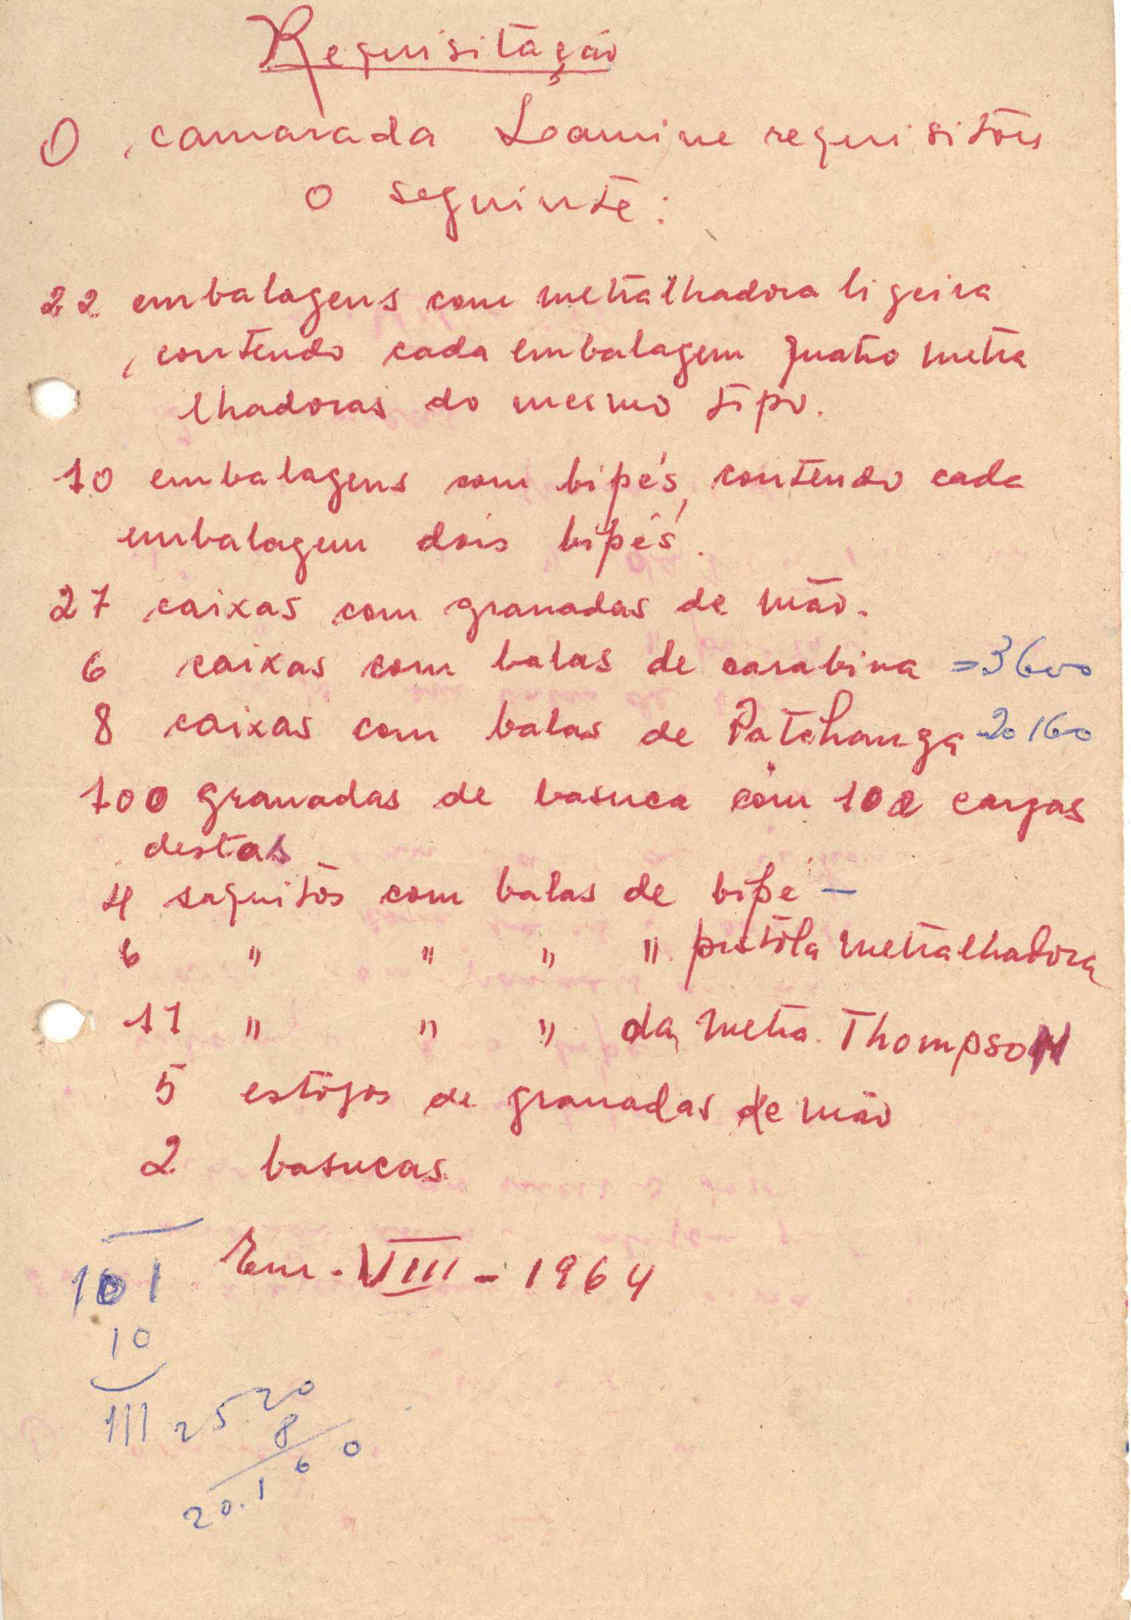 Requisitação
O camarada Loamine requisitou
o seguinte:
22 embalagens com metralhadora ligeira
contendo cada embalagem quatro metra
lhadoras do mesmo tipo.
10 embalagens com bipés, contendo cada
embalagem dois bipés.
27 caixas com granadas de mão.
6 caixas com balas de carabina = 3600
8 caixas com balas de Patchanga - 20160
100 granadas de basuca com 102 cargas
destas
4 saquitos com balas de bipé —
6 " " " " pistola metralhadora
11 " " " da metra. Thompson
5 estojos de granadas de mão
2 basucas
Em - VIII - 1964
101
10
111
2520
8
20.160